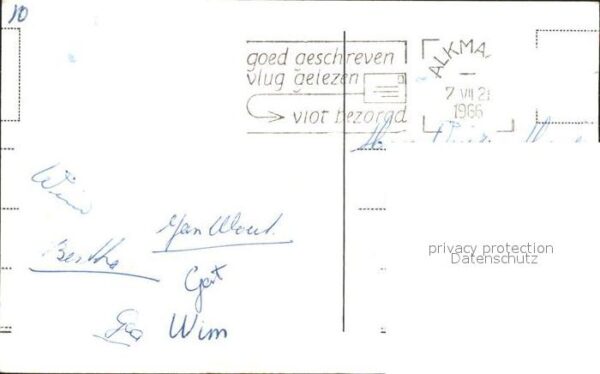 10
goed geschreven
vlug gelezen
vlot bezorgd
ALKMA
7 VII 21
1966
Wim
Jan Wout
Bertha
Gat
Gea Wim
privacy protection
Datenschutz